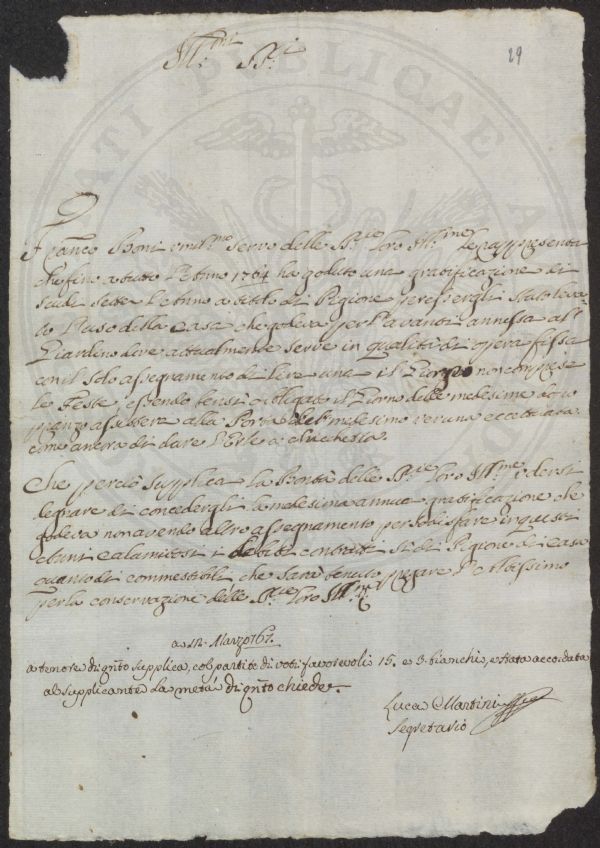 29
Ill.mi SS.ri
Franco Boni umil.mo servo delle SS.rie Loro Ill.me le rappresenta
che fino a tutto l'Anno 1764 ha goduto una gratificazione di
scudi sette l'Anno a titolo di Pigione per essergli stato leva-
to l'uso della Casa che godeva per l'avanti annessa al
Giardino dove attualmente serve in qualità di opera fissa
con il solo assegnamento di lire una il Giorno non comprese
le Feste, essendo tensì obligato il Giorno delle medesime dopo
pranzo assistere alla Porta del medesimo veruna eccettuata
come ancora di dare l'Erbe a chi chesia.
Che perciò supplica la Bontà delle SS.rie Loro Ill.me a dersi
degnare di concedergli la medesima annua gratificazione che
godeva non avendo altro assegnamento per sodisfare in questi
calamitosi i debiti contratti sì di Pigione di casa
quanto di commestibili che sarà tenuto pregare l'Altissimo
per la conservazione delle SS.rie Loro Ill.me
a 12. Marzo 167.
a tenore di q.nto supplica, col partito di voti favorevoli 15. e 3. bianchi, è stata accordata
al supplicante la metà di q.nto chiede.
Luca Martini
Segretario
STATI PUBLICAE